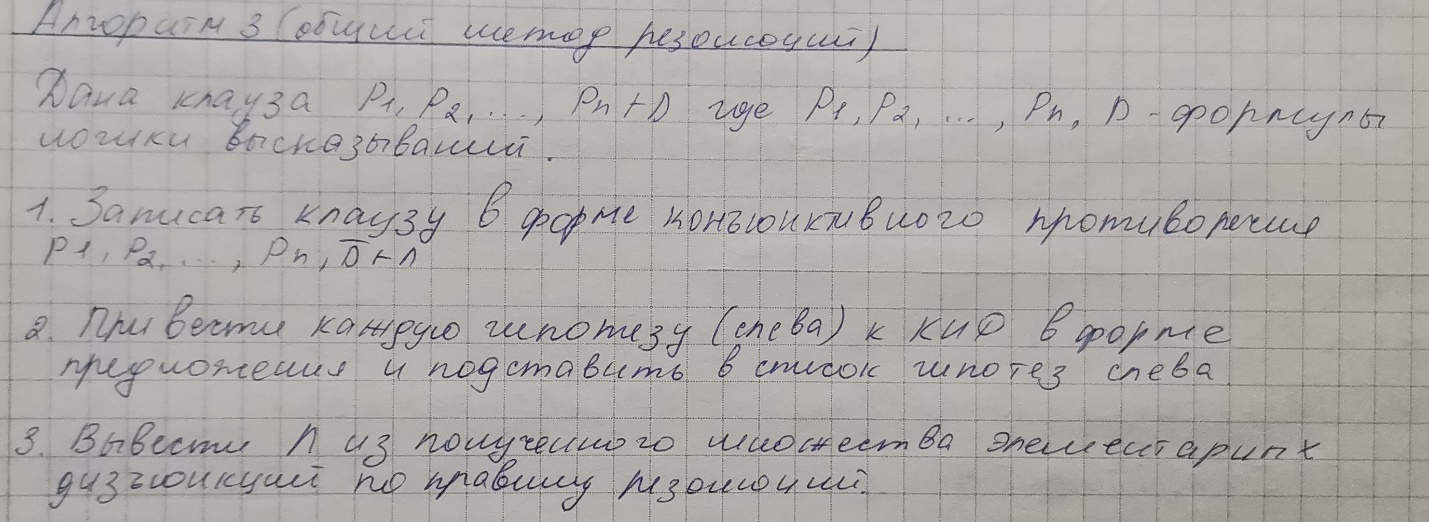 Алгоритм 3 (общий метод резолюций)
Дана клауза P1, P2, ..., Pn ⊢ D где P1, P2, ..., Pn, D - формулы
логики высказываний.
1. Записать клаузу в форме конъюнктивного противоречия
P1, P2, ..., Pn, D̅ ⊢ Л
2. Привести каждую гипотезу (слева) к КНФ в форме
предложения и подставить в список гипотез слева
3. Вывести Л из полученного множества элементарных
дизъюнкций по правилу резолюций.